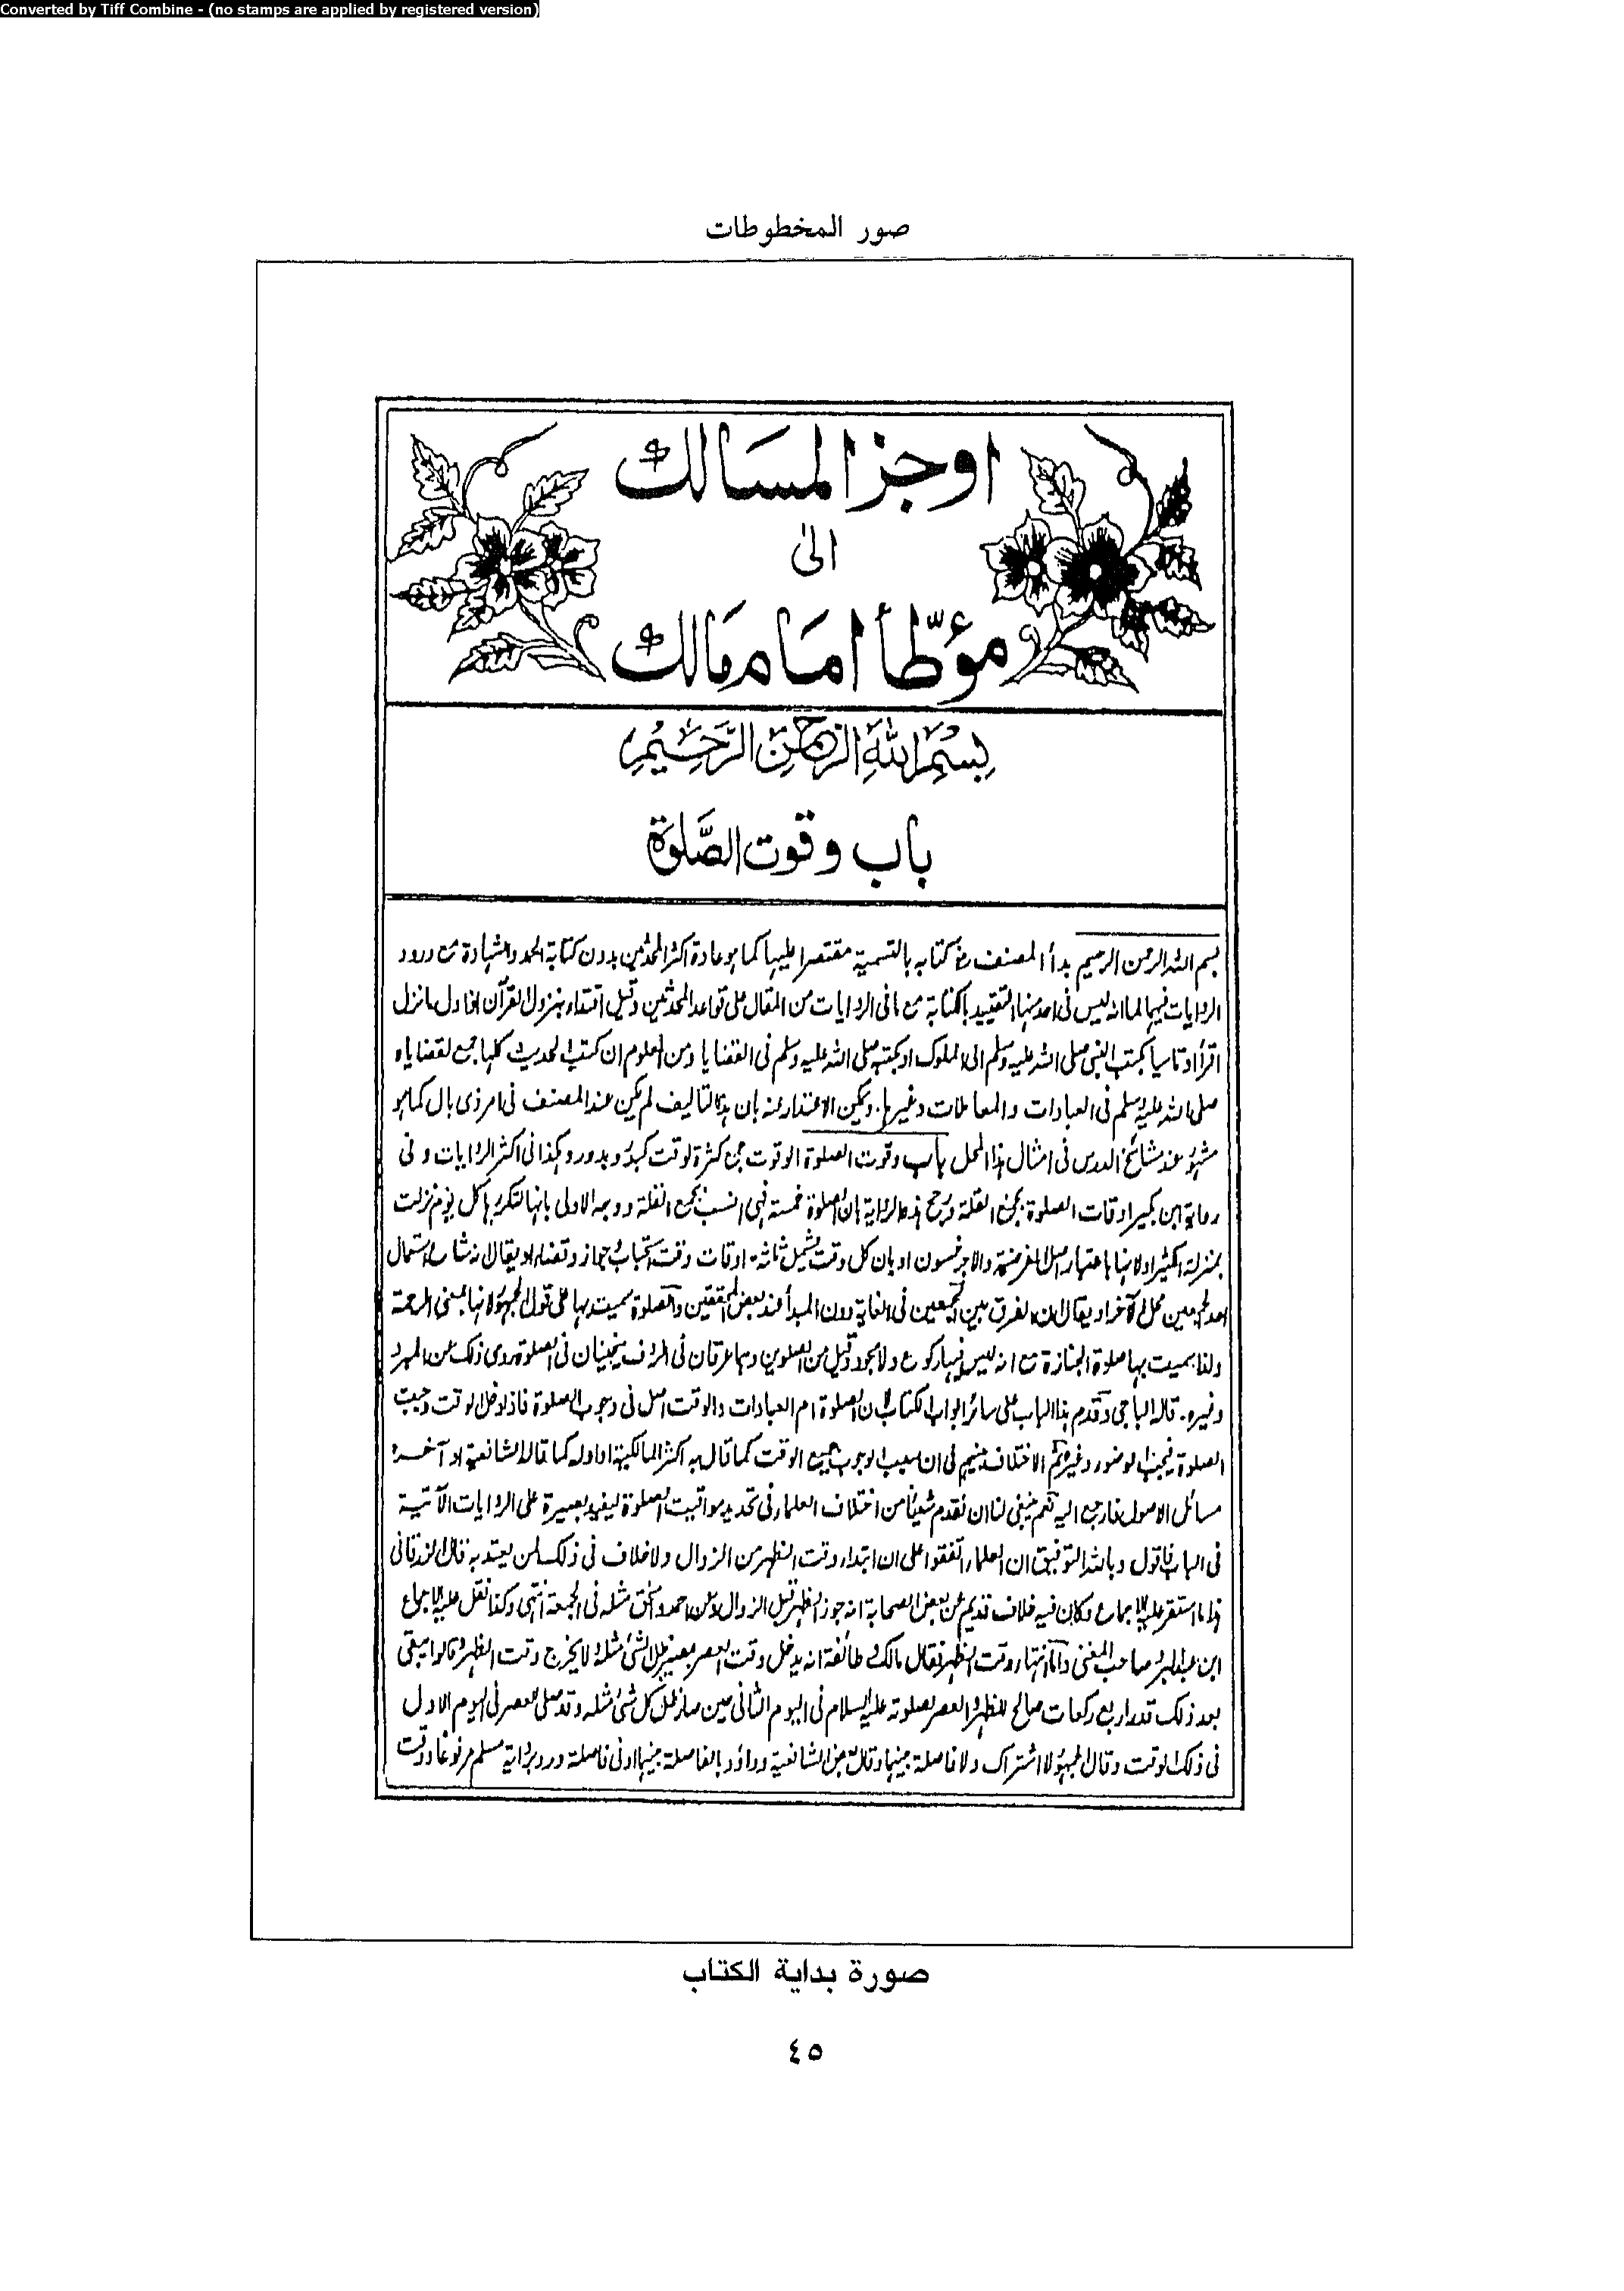 Converted by Tiff Combine - (no stamps are applied by registered version)
صور المخطوطات
اوجز المسالك
الىٰ
مؤطّأ امام مالك
بِسْمِ اللهِ الرَّحْمٰنِ الرَّحِيْمِ
باب وقوت الصَّلوٰة
بسم الله الرحمن الرحيم بدأ المصنف رض كتابه بالتسمية مقتصرا عليها كما هو عادة اكثر المحدثين بدون كتابة الحمد والشهادة مع ورود
الروايات فيهما لما انه ليس فى احد منها التقييد بالكتابة مع ما فى الروايات من المقال على قواعد المحدثين وقيل اقتداء بنزول القرآن اذ اول ما نزل
اقرأ وتاسيا بكتب النبى صلى الله عليه وسلم الى الملوك او بكتبه صلى الله عليه وسلم فى القضايا ومن المعلوم ان كتب الحديث كلها جمع لقضاياه
صلى الله عليه وسلم فى العبادات والمعاملات وغيرها. ويمكن الاعتذار عنه بان هذا التاليف لم يكن عند المصنف فى امر ذى بال كما هو
مشهور عند مشائخ الدرس فى امثال هذا المحل باب وقوت الصلوة الوقوت جمع كثرة لوقت كبدر وبدور وهكذا فى اكثر الروايات وفى
رواية ابن بكير اوقات الصلوة بجمع القلة ورجح هذه الرواية بان الصلوة خمسة فهى انسب بجمع القلة ووجه الاولى بانها لتكررها كل يوم نزلت
بمنزلة الكثير اولانها باعتبار اصل الفريضة والاجر خمسون او بان كل وقت يشمل ثلثة اوقات وقت استحباب وجواز وقضاء او يقال انه شاع استعمال
احد الجمعين محل الآخر او يقال ان الفرق بين الجمعين فى الغاية دون المبدأ عند بعض المحققين والصلوة سميت بها على قول الجمهور لانها بمعنى الرحمة
ولذا سميت بها صلوة الجنازة مع انه ليس فيها ركوع ولا سجود وقيل من الصلوين وهما عرقان فى الردف ينحنيان فى الصلوة روى ذلك عن المبرد
وغيره. قاله الباجى وقدم هذا الباب على سائر ابواب الكتاب لان الصلوة ام العبادات والوقت اصل فى وجوب الصلوة فاذا دخل الوقت وجبت
الصلوة فيجب الوضوء وغيره ثم الاختلاف بينهم فى ان سبب الوجوب جميع الوقت كما قال به اكثر المالكية او اوله كما قاله الشافعية او آخره
مسائل الاصول فارجع اليه نعم ينبغى لنا ان نقدم شيئا من اختلاف العلماء فى تحديد مواقيت الصلوة ليفيد بصيرة على الروايات الآتية
فى الباب فاقول وبالله التوفيق ان العلماء اتفقوا على ان ابتداء وقت الظهر من الزوال ولا خلاف فى ذلك لمن يعتد به قال الزرقانى
هذا ما استقر عليه الاجماع وكان فيه خلاف قديم عن بعض الصحابة انه جوز الظهر قبل الزوال وعن احمد واسحق مثله فى الجمعة انتهى وكذا نقل عليه الاجماع
ابن عبد البر وصاحب المغنى واما انتهاء وقت الظهر فقال مالك وطائفة انه يدخل وقت العصر بمصير ظل الشئ مثله ولا يخرج وقت الظهر وقالوا يبقى
بعد ذلك قدر اربع ركعات صالح للظهر والعصر لصلوته عليه السلام فى اليوم الثانى حين صار ظل كل شئ مثله وقد صلى العصر فى اليوم الاول
فى ذلك الوقت وقال الجمهور لا اشتراك ولا فاصلة بينهما وقال بعض الشافعية وداؤد بالفاصلة بينهما ادنى فاصلة ورد برواية مسلم مرفوعا ووقت
صورة بداية الكتاب
٤٥